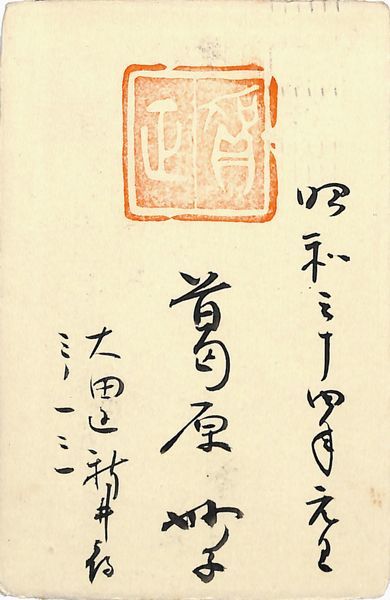 賀正
昭和三十四年元旦
葛原妙子
大田区新井宿
三ノ一三一